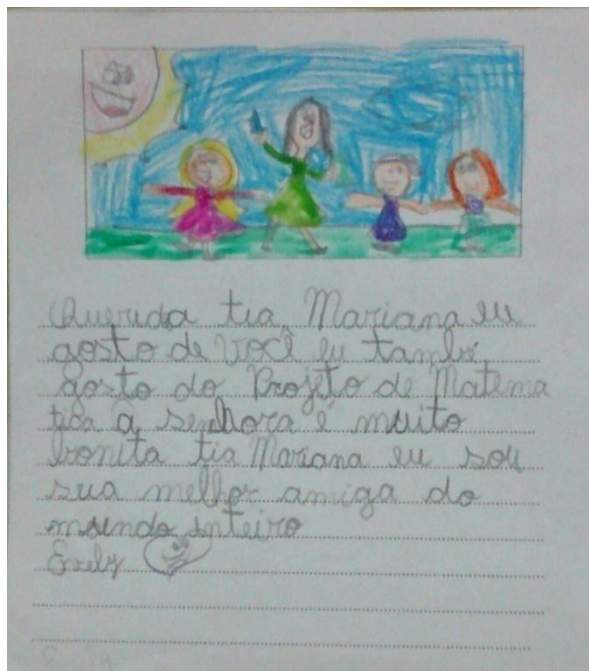 Querida tia Mariana eu
gosto de você eu també
gosto do Projeto de Matema
tica a senhora é muito
bonita tia Mariana eu sou
sua melhor amiga do
mundo inteiro
Evely